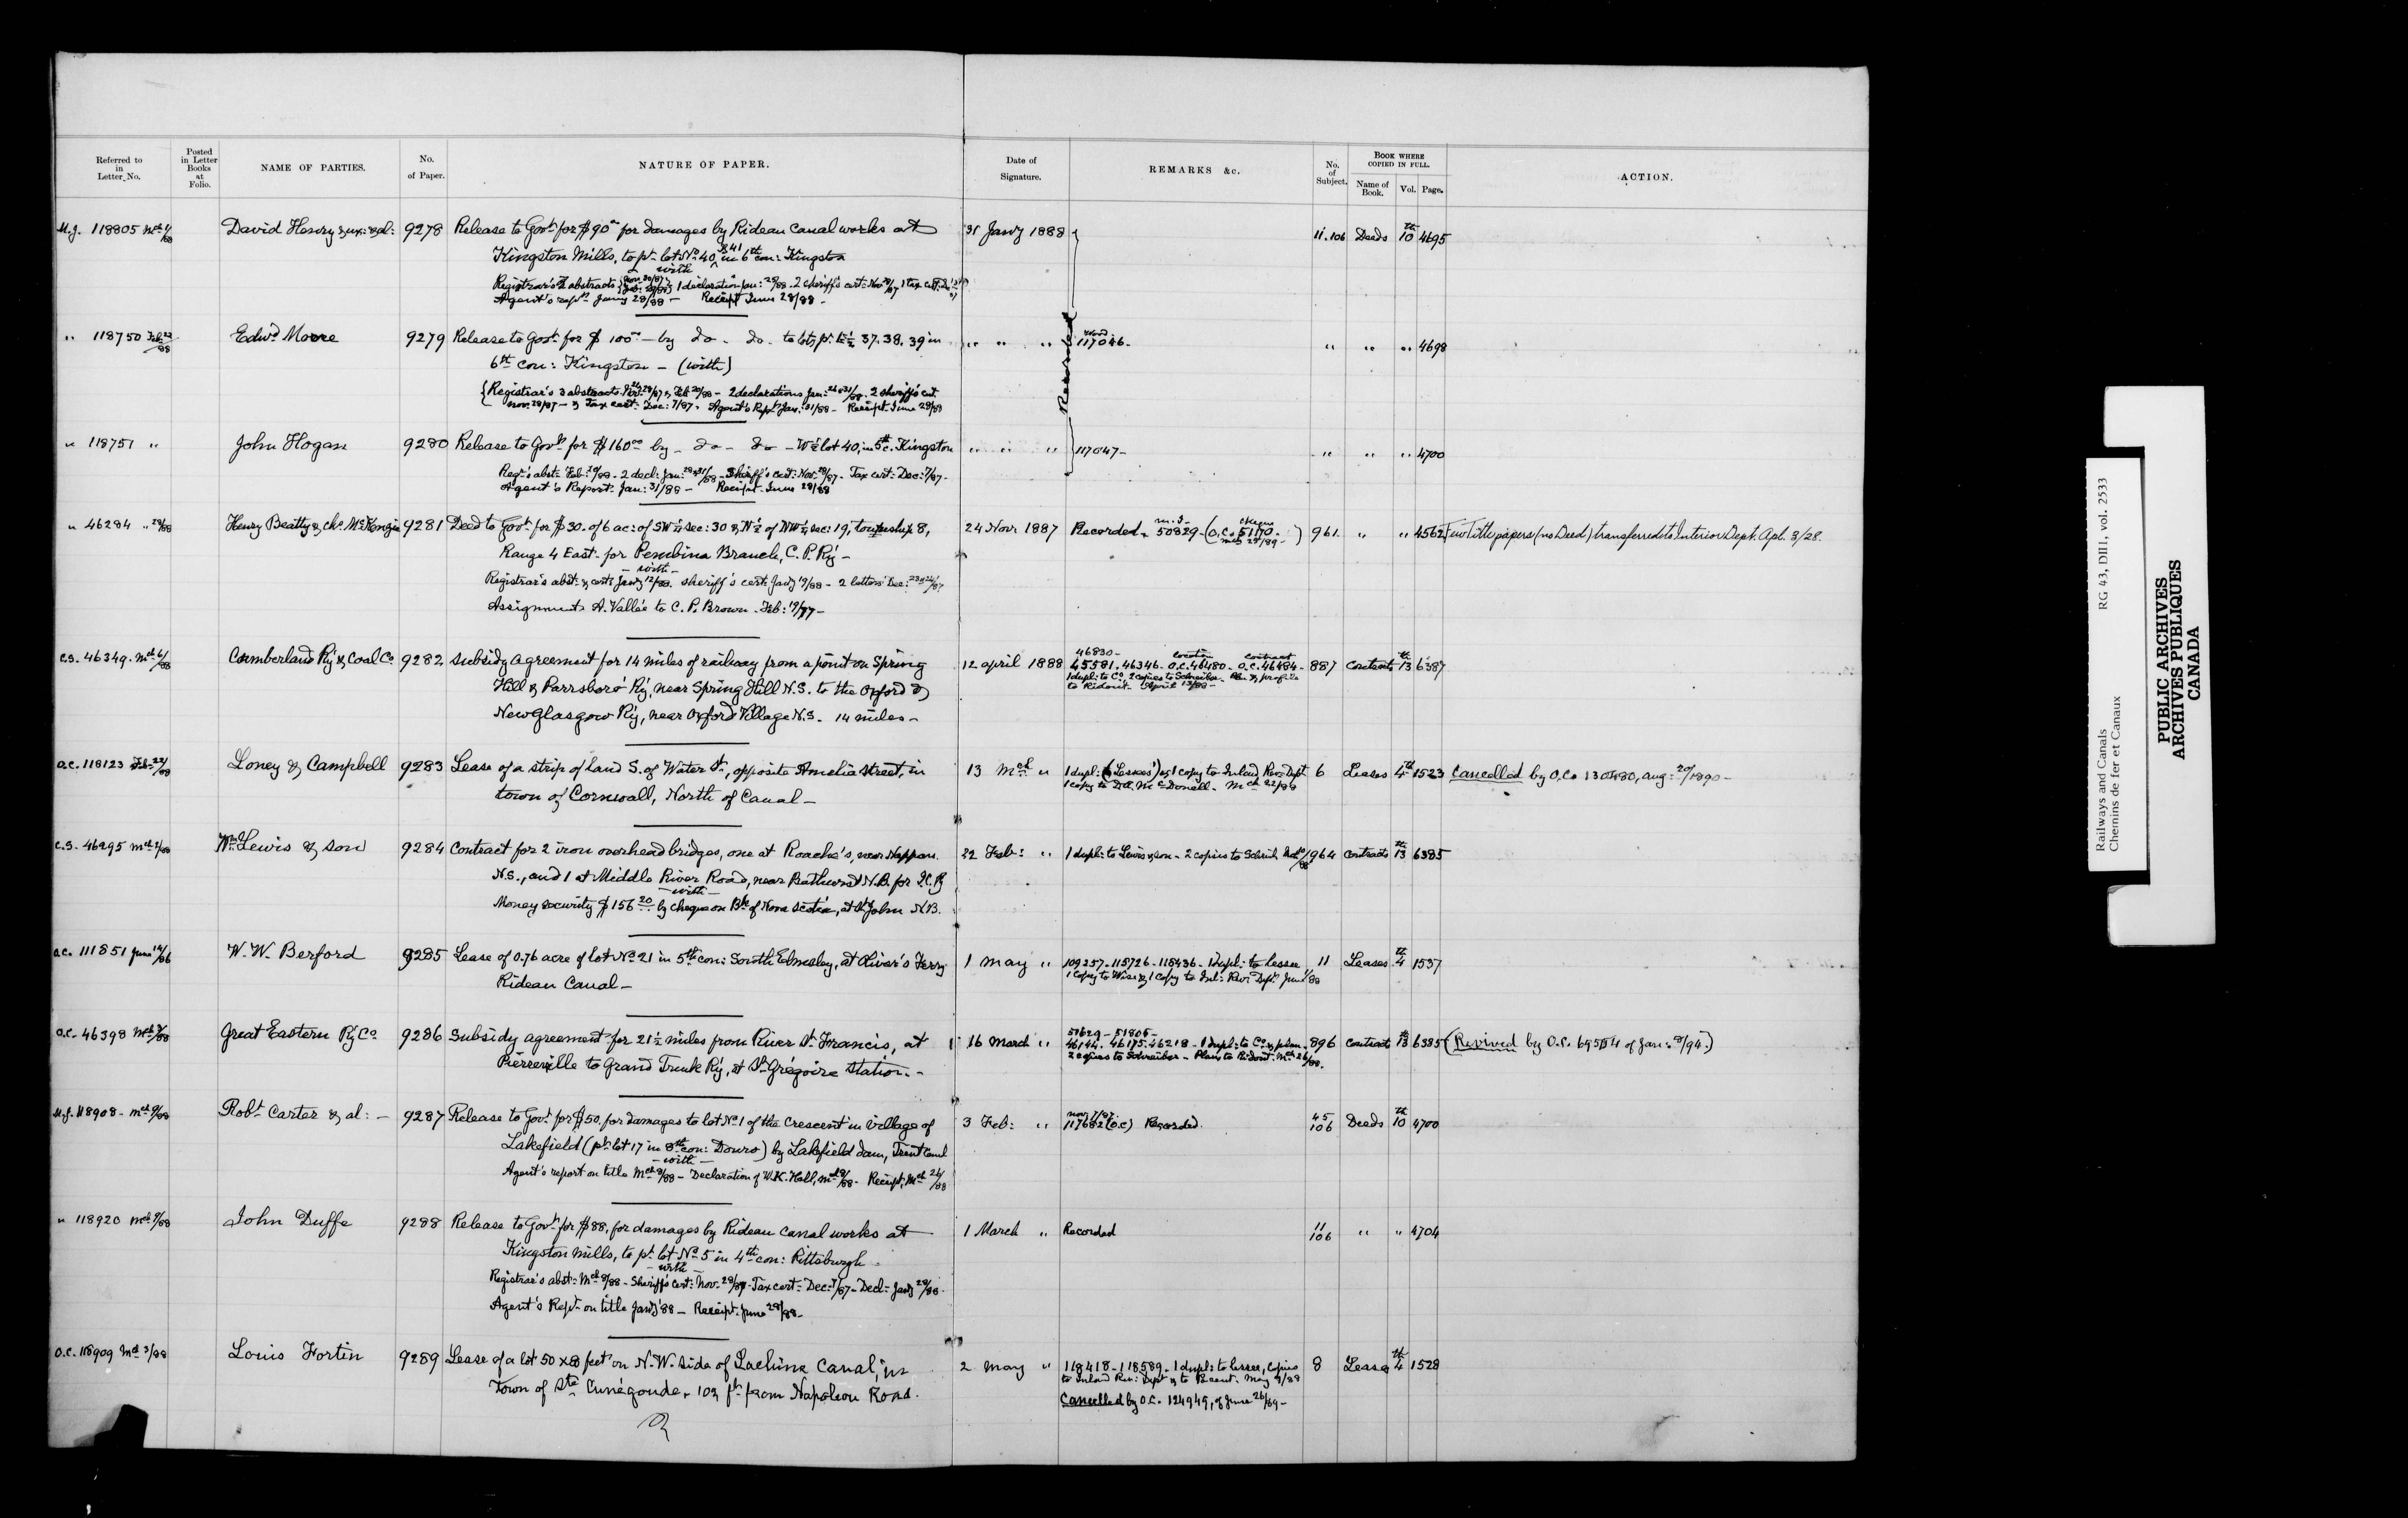 Referred to in Letter No.
Posted in Letter Books at Folio.
NAME OF PARTIES.
No. of Paper.
NATURE OF PAPER.
Date of Signature.
REMARKS &c.
No. of Subject.
BOOK WHERE COPIED IN FULL.
Name of Book.
Vol.
Page.
ACTION.
M.J. 118805 Mch 9/88 David Henry & ux: & al: 9278 Release to Govt. for $90 for damages by Rideau Canal works at 31 Jany 1888 11.106 Deeds 10th 4695
Kingston Mills, to pt. lot No. 40 & 41 in 6th con: Kingston
with
Registrar's 2 abstracts 1 declaration Jan: 28/88. 2 sheriff's cert: Nov 28/87 1 tax cert:
Agent's rept. Jany 28/88 — Receipt June 28/88 -
Recorded
" 118750 Feb 23/88 Edwd. Moore 9279 Release to Govt. for $100 — by do - do. to lots pt. E½ 37. 38. 39 in " " " 117046 - " " " 4698
6th con: Kingston — (with)
Registrar's 3 abstracts Feb 20/88 — 2 declarations Jan: 31/88. 2 sheriff's cert.
Nov. 28/87 — & Tax cert: Dec: 7/87. Agent's Rept. Jan. 31/88 — Receipt June 28/88
" 118751 " John Hogan 9280 Release to Govt. for $160 00 by — do — do — W½ lot 40, in 5th c. Kingston " " " 117047 - " " " 4700
Regr's abst: Feb: 20/88 - 2 decl: Jan: 31/88 - Sheriff's cert: Nov. 28/87 - Tax cert: Dec: 7/87 -
Agent's Report Jan: 31/88 — Receipt June 28/88
" 46284 " 28/88 Henry Beatty & Chs. McKenzie 9281 Deed to Govt. for $30. of 6 ac: of SW¼ sec: 30 & N½ of NW¼ sec: 19, township 8, 24 Novr 1887 Recorded. 50829 - (O.C. 51170. Mch 28/89 -) 961. " " 4562 Few Title papers (no Deed) transferred to Interior Dept. Apl. 3/28.
Range 4 East for Pembina Branch, C. P. Ry —
with
Registrar's abst: & cert: Jany 12/88. sheriff's cert: Jany 19/88 — 2 letters Dec: 23 & 24/87
Assignment A. Vallée to C. P. Brown. Feb: 19/77 -
C.S. 46349. Mch 6/88 Cumberland Ry & Coal Co 9282 Subsidy agreement for 14 miles of railway from a point on Spring 12 April 1888 46830 - 45581. 46346. O.C. 46480 - O.C. 46484 - 887 Contracts 13th 6387
Hill & Parrsboro' Ry, near Spring Hill N.S. to the Oxford & 1 dupl: to Co. 2 copies to Schreiber. Plan & profile
New Glasgow Ry, near Oxford Village N.S. 14 miles - to Ridout. April 13/88 -
O.C. 118123 Feb 22/88 Loney & Campbell 9283 Lease of a strip of land S. of Water St., opposite Amelia Street, in 13 Mch " 1 dupl: (Lessees') & 1 copy to Inland Rev: Dept 6 Leases 4th 1523 Cancelled by O.C. 130480, Aug: 20/1890 -
town of Cornwall, North of Canal — 1 copy to McDonell. Mch 22/88
C.S. 46295 Mch 2/88 Wm. Lewis & Son 9284 Contract for 2 iron overhead bridges, one at Roache's, near Nappan. 22 Feb: " 1 dupl: to Lewis & son - 2 copies to Schreib. 964 Contracts 13th 6385
N.S., and 1 at Middle River Road, near Bathurst N.B. for I.C.R
with
Money security $156 20 by cheque on Bk. of Nova Scotia, at St. John N.B.
O.C. 111851 June 14/86 W. W. Berford 9285 Lease of 0.76 acre of lot No. 21 in 5th con: South Elmsley, at Oliver's Ferry 1 May " 109257 - 115726 - 115436 - 1 dupl: to lessee 11 Leases 4th 1537
Rideau Canal — 1 copy to Wise & 1 copy to Inl: Rev: Dept. June 1/88
O.C. 46398 Mch 8/88 Great Eastern Ry Co 9286 Subsidy agreement for 21½ miles from River St. Francis, at 16 March " 51629 - 51805 - 46144. 46175. 46218 - 1 dupl: to Co. & plan. 896 Contracts 13th 6385 (Revived by O.C. of Jan: 8/94.)
Pierreville to Grand Trunk Ry, at St. Grégoire Station. - 2 copies to Schreiber - Plan to Ridout. Mch 26/88.
M.J. 118908 - Mch 9/88 Robt. Carter & al: — 9287 Release to Govt. for $50. for damages to lot No. 1 of the Crescent in Village of 3 Feb: " 117682 (O.C) Recorded. 45 106 Deeds 10th 4700
Lakefield (pt. lot 17 in 8th con: Douro) by Lakefield dam, Trent Canal
with
Agent's report on title Mch 8/88 — Declaration of W. K. Hall, Mch 8/88 - Receipt, Mch 24/88
" 118920 Mch 9/88 John Duffe 9288 Release to Govt. for $88, for damages by Rideau Canal works at 1 March " Recorded 11 106 " " 4704
Kingston Mills, to pt. lot No. 5 in 4th con: Pittsburgh
with
Registrar's abst: Mch 8/88 - Sheriff's cert: Nov. 28/87 - Tax cert: Dec: 7/87 - Decl: Jany 28/88.
Agent's Rept. on title Jany '88 — Receipt June 28/88 -
O.C. 118909 Mch 3/88 Louis Fortin 9289 Lease of a lot 50 x 80 feet on N.W. side of Lachine Canal, in 2 May " 118418 - 118589 - 1 dupl: to lessee, copies 8 Leases 4th 1528
Town of Ste. Cunégonde, 103 ft. from Napoleon Road. to Inland Rev: Dept & to Parent. May 4/88
Cancelled by O.C. 124949, of June 26/89 -
Railways and Canals
Chemins de fer et Canaux
RG 43, DIII, vol. 2533
PUBLIC ARCHIVES
ARCHIVES PUBLIQUES
CANADA